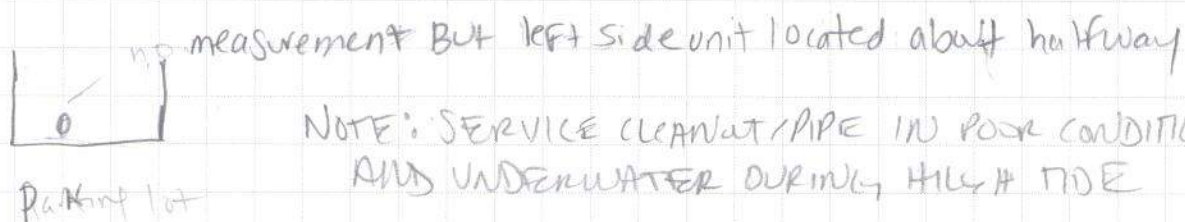 no measurement But left side unit located about halfway
NOTE: SERVICE CLEANOUT/PIPE IN POOR CONDITIO
AND UNDERWATER DURING HIGH TIDE
Parking lot